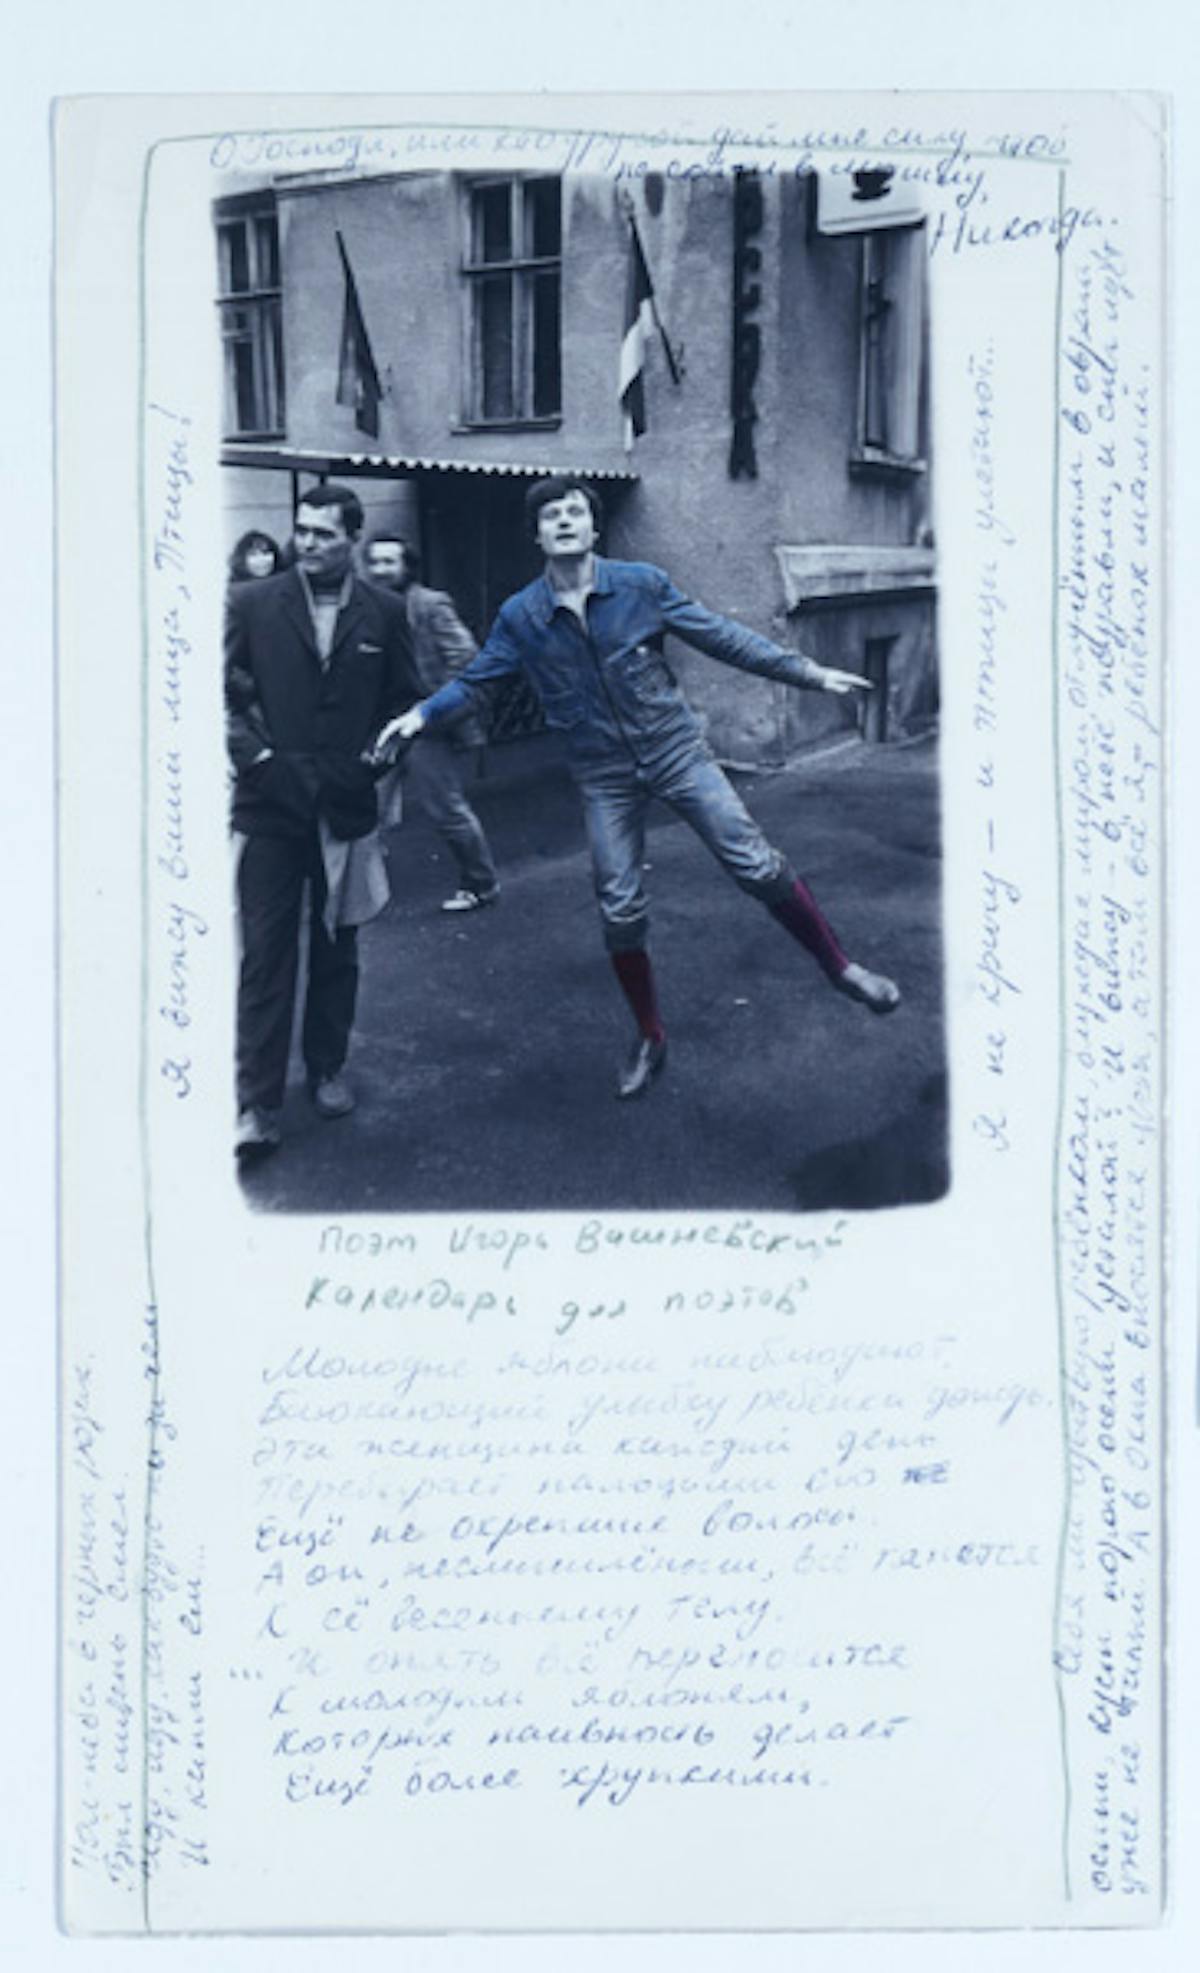 О Господи, или кто другой дай мне силу,
не сойти в могилу,
Никогда.
Я вижу ваши лица, Птицы!
Я не кричу — и птицы улетают...
Поэт Игорь Вишневский
Календарь для поэтов
Молодые яблони наблюдают,
Баюкающий улыбку ребёнка дождь.
Эта женщина каждый день
Перебирает пальцами его
Ещё не окрепшие волосы.
А он, несмышлёныш, всё тянется
К её весеннему телу.
... И опять всё переносится
К молодым яблоням,
Которых наивность делает
Ещё более хрупкими.
небо в черных
Был ливень смел.
иду, иду, как будто
И капли ем...
Себя я чувствую ребёнком,
осени, и вижу - в небе журавли, и снег идёт
уже не А в окна вносится а там всё я, - ребёнок малый.